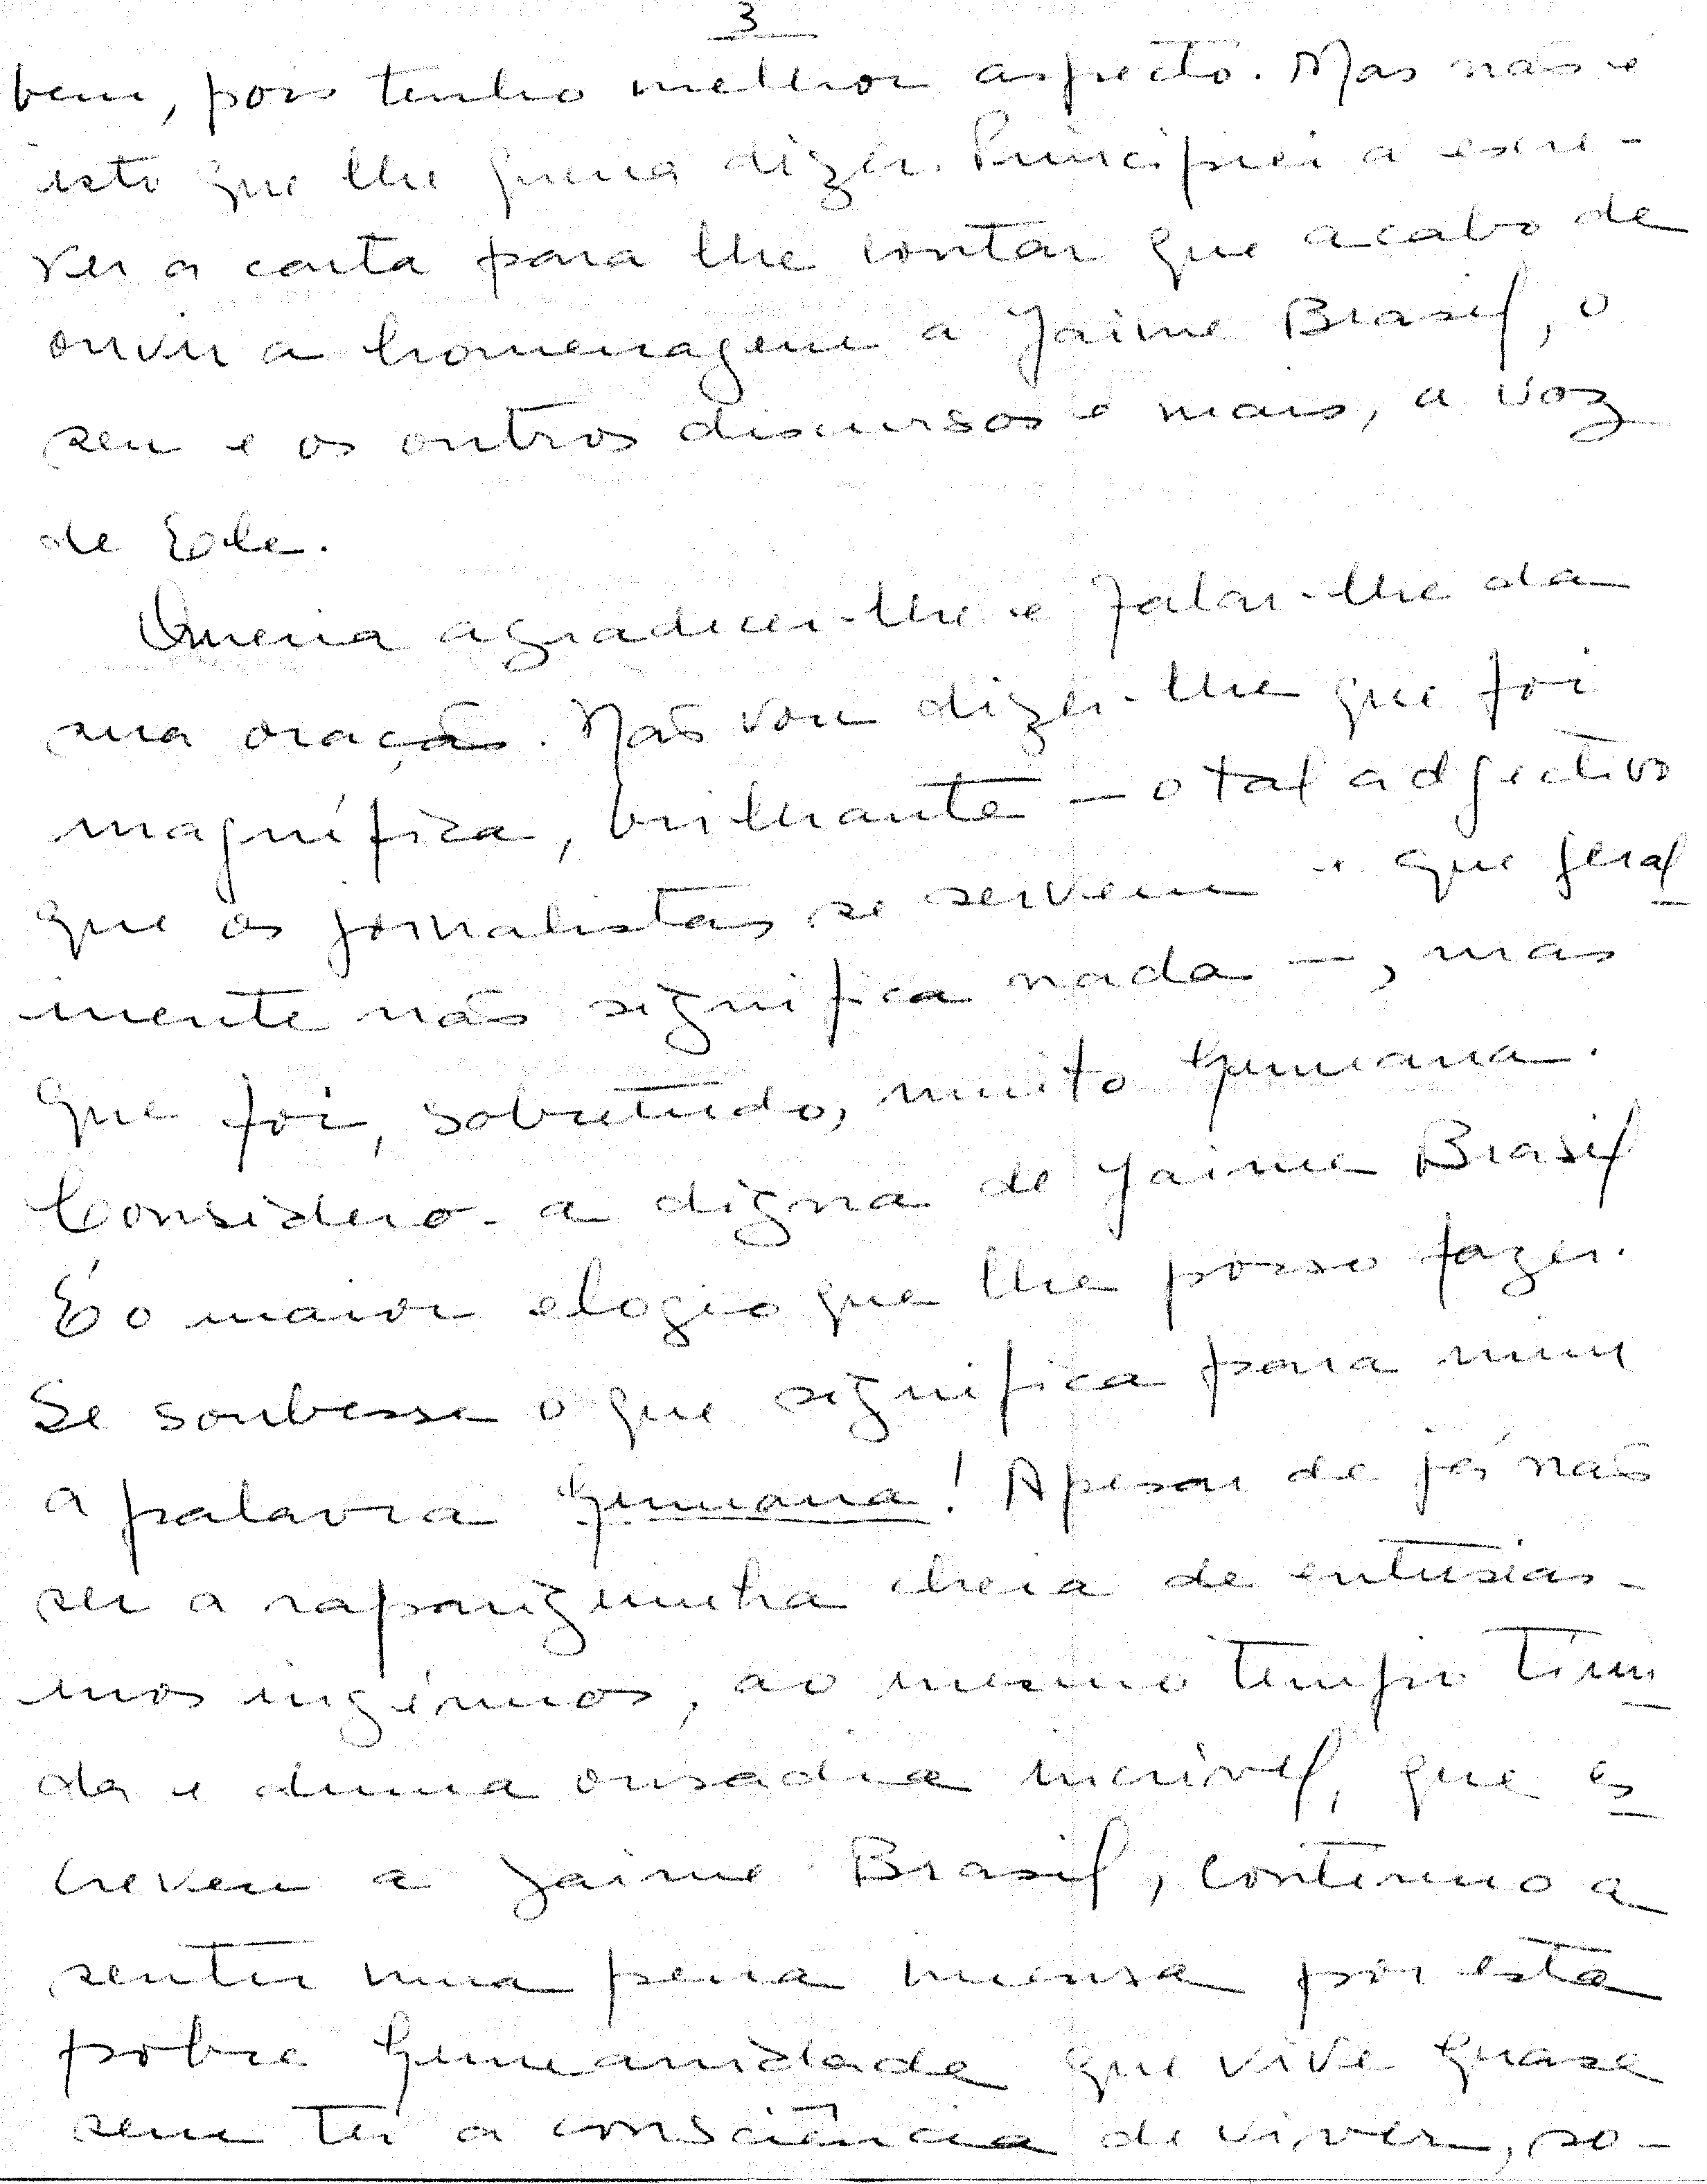 3
bem, pois tenho melhor aspecto. Mas não é
isto que lhe queria dizer. Principiei a escre-
ver a carta para lhe contar que acabo de
ouvir a homenagem a Jaime Brasil, o
seu e os outros discursos e mais, a voz
de Ele.
Queria agradecer-lhe e falar-lhe da
sua oração. Não vou dizer-lhe que foi
magnífica, brilhante — o tal adjectivo
que os jornalistas se servem e que geral
mente não significa nada —, mas
que foi, sobretudo, muito humana.
Considero-a digna de Jaime Brasil
É o maior elogio que lhe posso fazer.
Se soubesse o que significa para mim
a palavra humana! Apesar de já não
ser a rapariguinha cheia de entusias-
mos ingénuos, ao mesmo tempo tími
da e duma ousadia incrível, que es
creveu a Jaime Brasil, continuo a
sentir uma pena imensa por esta
pobre humanidade que vive quase
sem ter a consciência de viver, so-